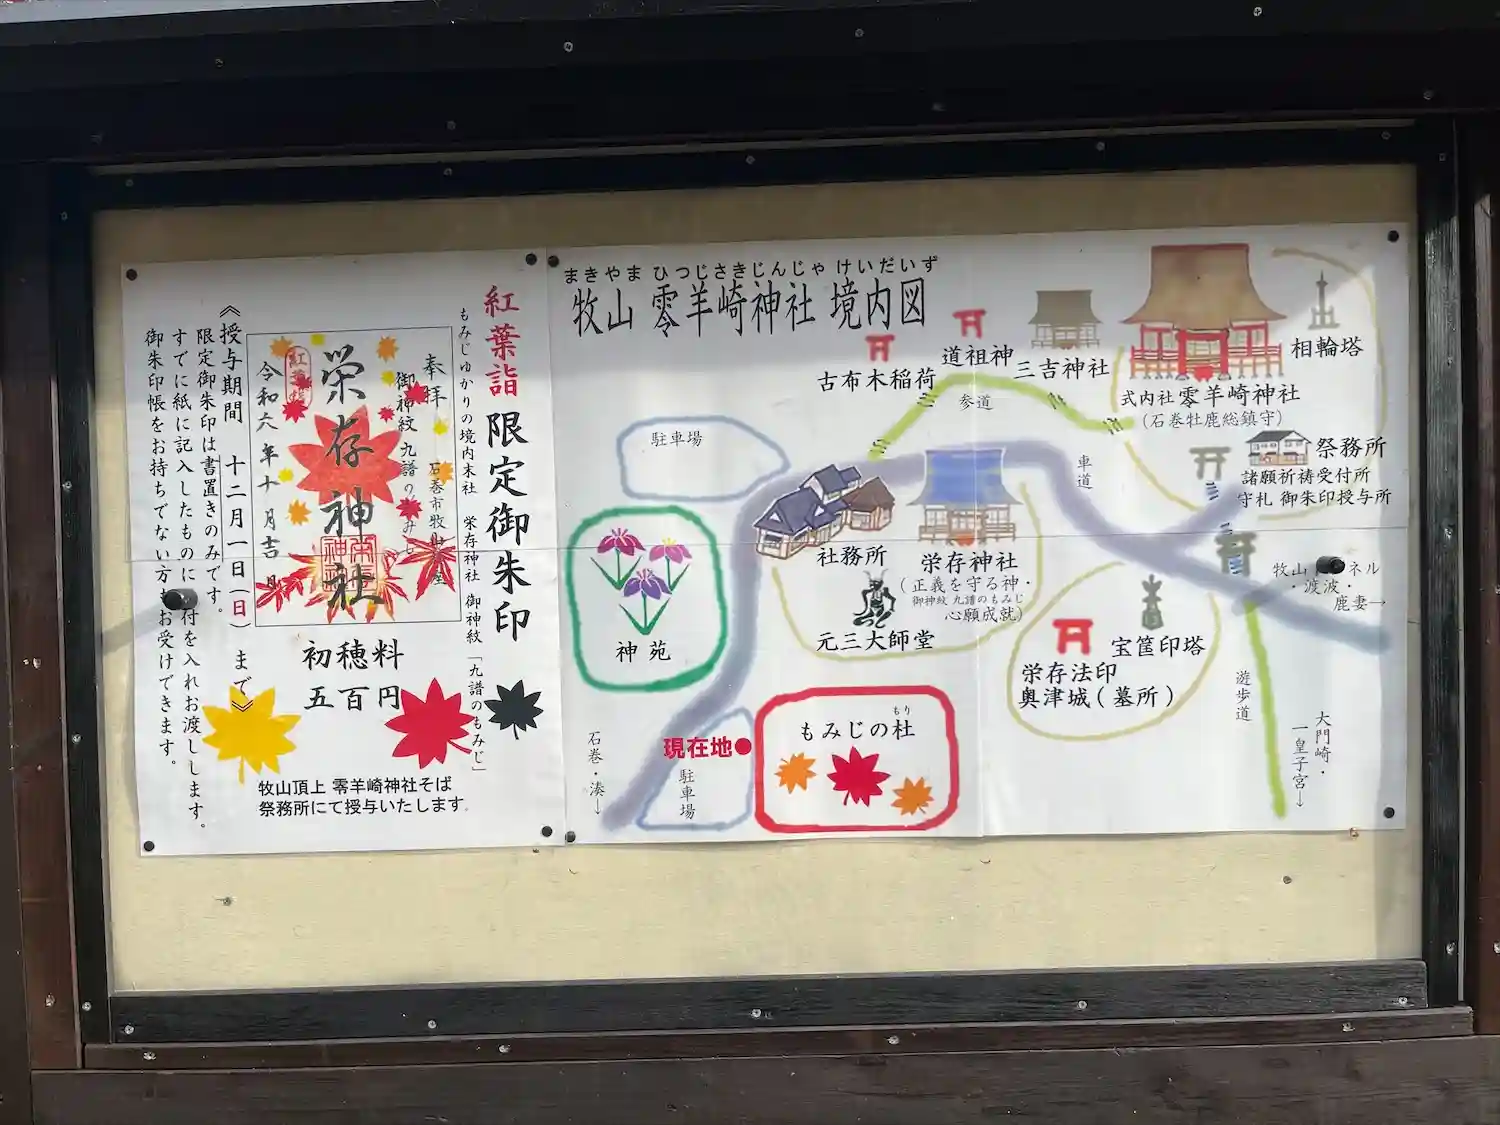 紅葉詣 限定御朱印
もみじゆかりの境内末社 栄存神社 御神紋「九譜のもみじ」
奉拝
御神紋 九譜の
栄存神社
令和六年十月吉
初穂料
五百円
《授与期間 十二月一日(日)まで》
限定御朱印は書置きのみです。
すでに紙に記入したものに 付を入れお渡しします。
御朱印帳をお持ちでない方もお受けできます。
牧山頂上 零羊崎神社そば
祭務所にて授与いたします。
まきやま ひつじさきじんじゃ けいだいず
牧山 零羊崎神社 境内図
古布木稲荷
道祖神
三吉神社
参道
式内社 零羊崎神社
(石巻牡鹿総鎮守)
相輪塔
祭務所
諸願祈祷受付所
守札 御朱印授与所
駐車場
車道
社務所
栄存神社
(正義を守る神・
御神紋 九譜のもみじ
心願成就)
元三大師堂
神苑
牧山 ネル
・渡波・
鹿妻→
宝篋印塔
栄存法印
奥津城(墓所)
遊歩道
大門崎・
一皇子宮→
もり
もみじの杜
現在地
駐車場
石巻・湊→